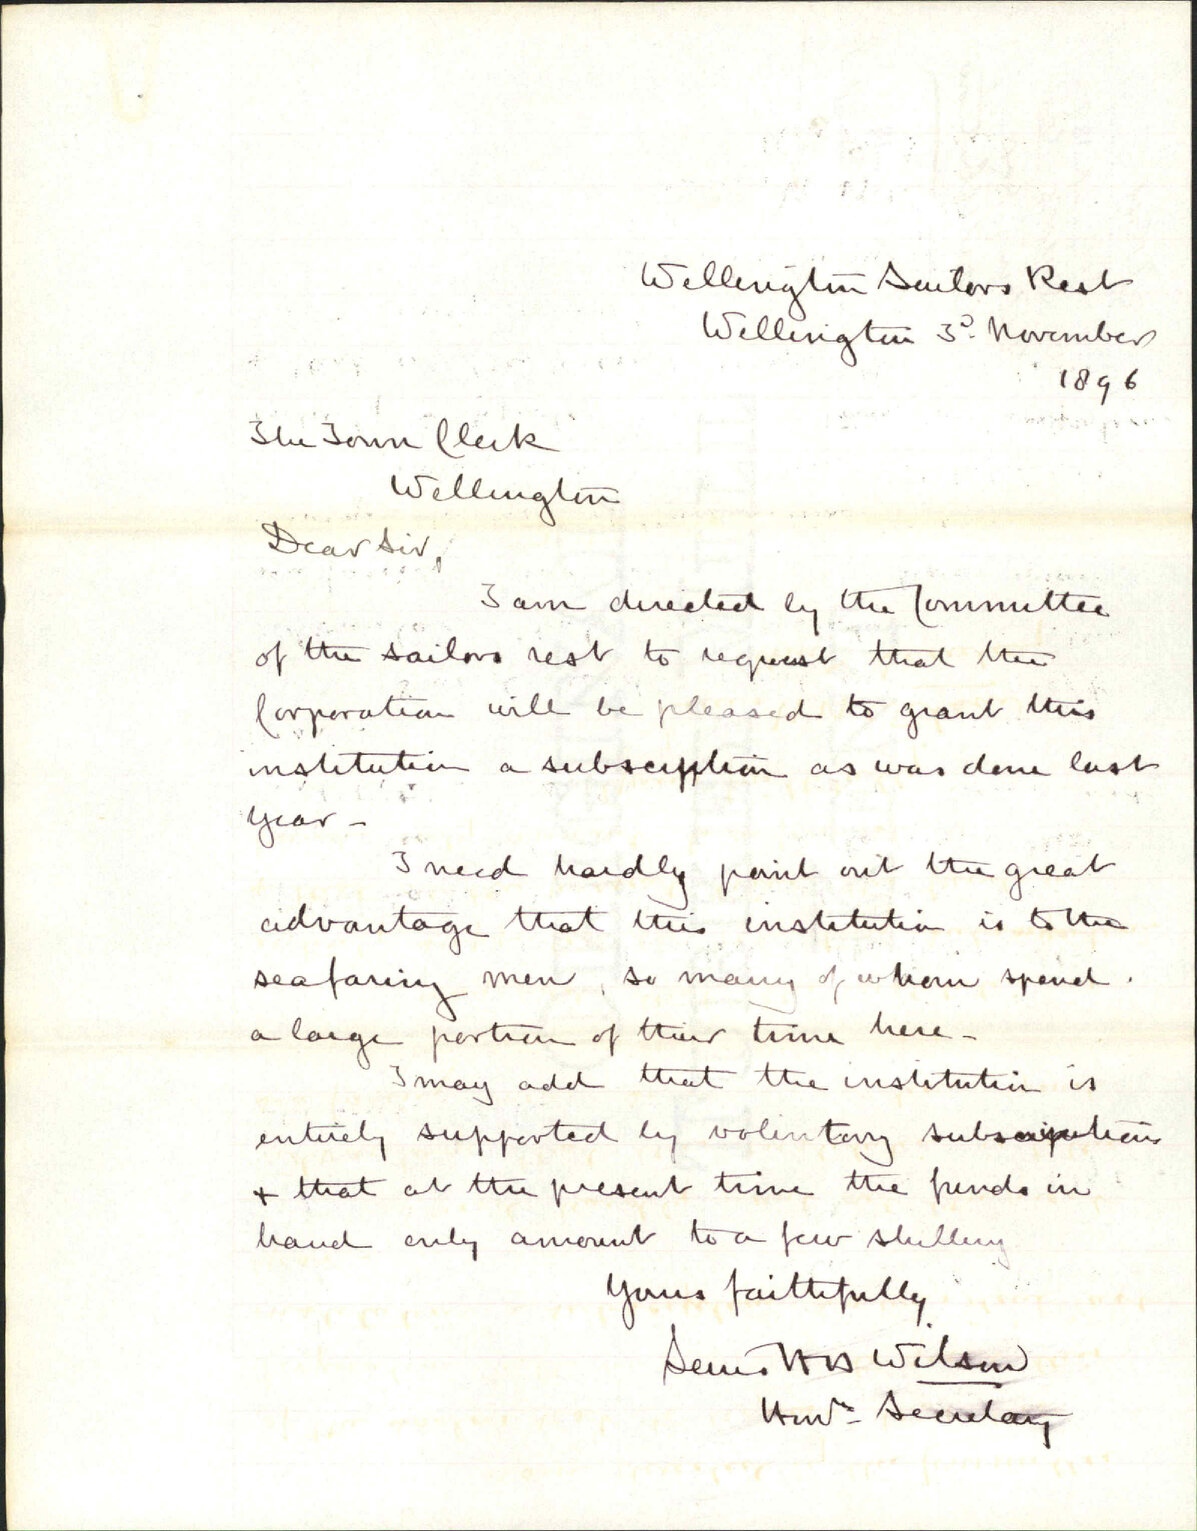 Wellington Sailors Rest
Wellington 3d November
1896
The Town Clerk
Wellington
Dear Sir,
I am directed by the Committee
of the sailors rest to request that the
Corporation will be pleased to grant this
institution a subscription as was done last
year –
I need hardly point out the great
advantage that this institution is to the
seafaring men, so many of whom spend
a large portion of their time here –
I may add that the institution is
entirely supported by voluntary subscription
+ that at the present time the funds in
hand only amount to a few shillings
Yours faithfully
Wilson
Secretary